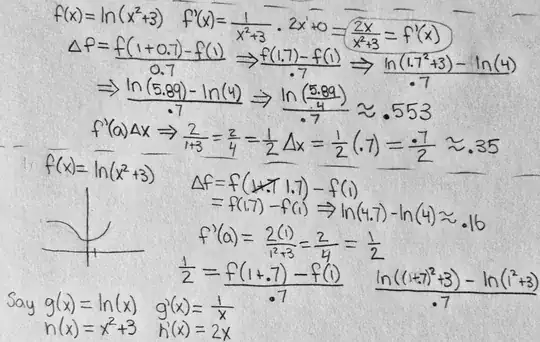 f(x) = ln(x²+3) f'(x) = 1/(x²+3) · 2x+0 = 2x/(x²+3) = f'(x)
Δf = (f(1+0.7) - f(1))/0.7 ⇒ (f(1.7) - f(1))/.7 ⇒ (ln(1.7²+3) - ln(4))/.7
⇒ (ln(5.89) - ln(4))/.7 ⇒ ln(5.89/4)/.7 ≈ .553
f'(a)Δx ⇒ 2/(1+3) = 2/4 = 1/2 Δx = 1/2 (.7) = .7/2 ≈ .35
f(x) = ln(x²+3)
Δf = f(1.7) - f(1)
= f(1.7) - f(1) ⇒ ln(4.7) - ln(4) ≈ .16
f'(a) = 2(1)/(1²+3) = 2/4 = 1/2
1/2 = (f(1+.7) - f(1))/.7 (ln((1+.7)²+3) - ln(1²+3))/.7
Say g(x) = ln(x) g'(x) = 1/x
h(x) = x²+3 h'(x) = 2x